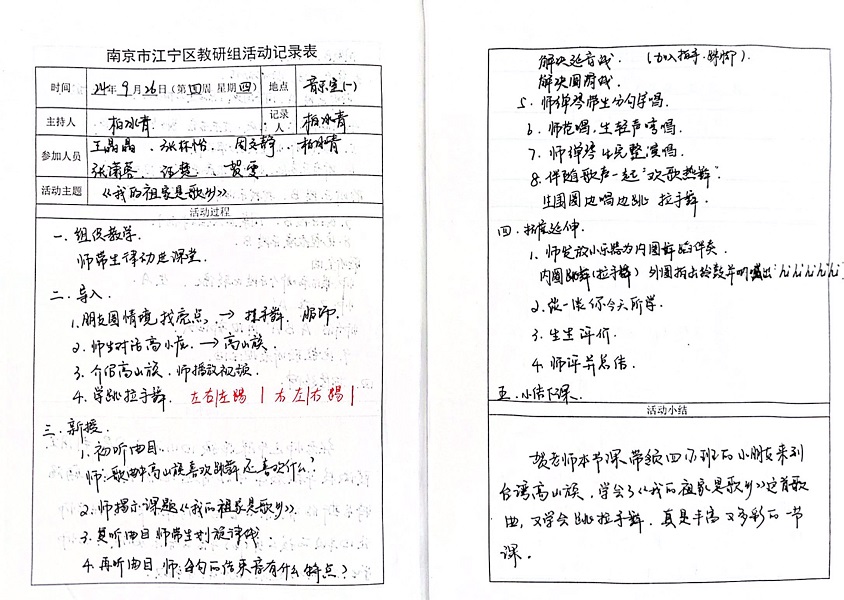 南京市江宁区教研组活动记录表
时间 24年9月26日(第四周 星期四) 地点 音乐室(一)
主持人 柏冰青 记录人 柏冰青
参加人员 王晶晶、张怀怡、周文静、柏冰青
张潇蓉、汪楚、贺雯
活动主题 《我的祖家是歌乡》
活动过程
一、组织教学.
师带生律动进课堂.
二、导入.
1.朋友圈情境找亮点 → 拉手舞. 服饰.
2.师生对话高小应. → 高山族.
3.介绍高山族.师播放视频.
4.学跳拉手舞. 左右|左踢 | 右左|右踢|
三、新授.
1.初听曲目
师:歌曲中高山族喜欢跳舞还喜欢什么?
2.师揭示课题《我的祖家是歌乡》.
3.复听曲目师带生划旋律线.
4.再听曲目 师:每句的结束音有什么特点?
解决延音线. (加入拍手.跺脚).
解决圆滑线.
5.师弹琴带生分句学唱.
6.师范唱.生轻声哼唱.
7.师弹琴生完整演唱.
8.伴随歌声一起"欢歌热舞".
生围圆边唱边跳 拉手舞.
四、拓展延伸.
1.师发放小乐器为内圈舞蹈伴奏.
内圈跳舞(拉手舞) 外圈拍出拾数并明喊出"hi hi hi hi hi
2.谈一谈你今天所学.
3.生生评价.
4.师评并总结.
五.小结下课.
活动小结
贺老师本节课带领四(7)班的小朋友来到
台湾高山族,学会了《我的祖家是歌乡》这首歌
曲,又学会跳拉手舞.真是丰富又多彩的一节
课.